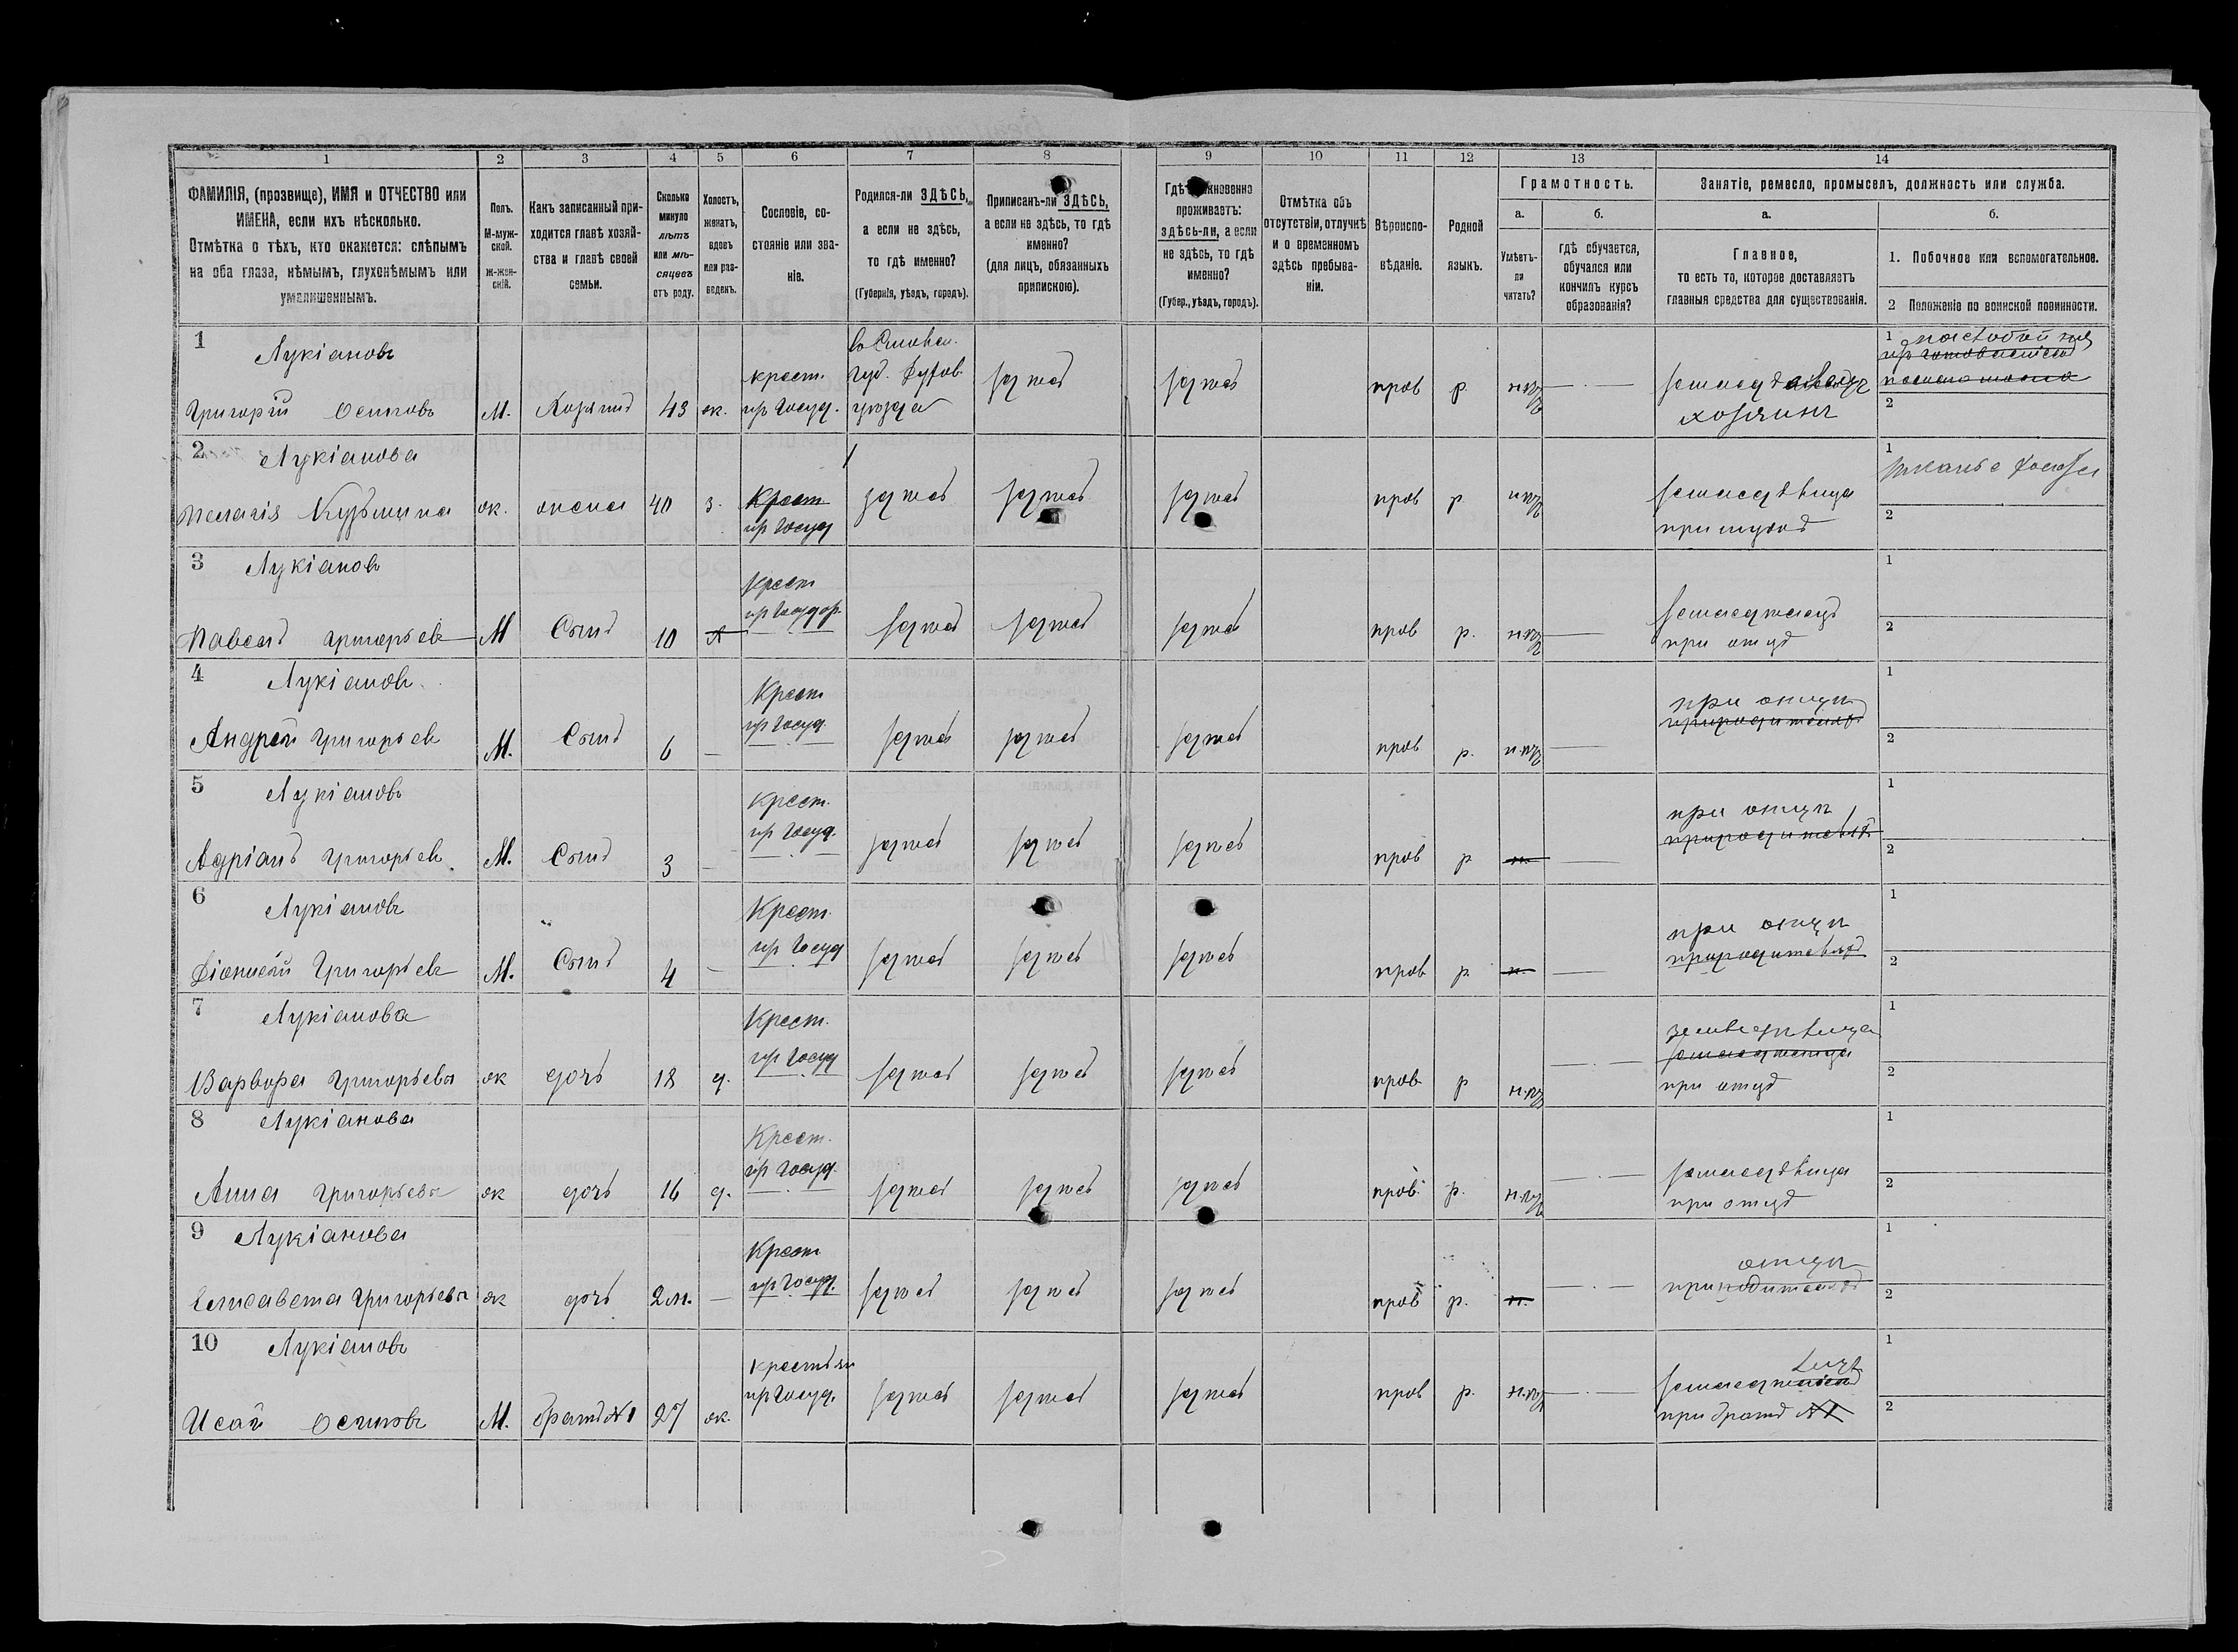 1 2 3 4 5 6 7 8 9 10 11 12 13 14
ФАМИЛІЯ, (прозвище), ИМЯ и ОТЧЕСТВО или
ИМЕНА, если ихъ нѣсколько.
Отмѣтка о тѣхъ, кто окажется: слѣпымъ
на оба глаза, нѣмымъ, глухонѣмымъ или
умалишеннымъ.
Полъ.
М-муж-
ской.
Ж-жен-
скій.
Какъ записанный при-
ходится главѣ хозяй-
ства и главѣ своей
семьи.
Сколько
минуло
лѣтъ
или мѣ-
сяцевъ
отъ роду.
Холостъ,
женатъ,
вдовъ
или раз-
веденъ.
Сословіе, со-
стояніе или зва-
ніе.
Родился-ли ЗДѢСЬ,
а если не здѣсь,
то гдѣ именно?
(Губернія, уѣздъ, городъ).
Приписанъ-ли ЗДѢСЬ,
а если не здѣсь, то гдѣ
именно?
(для лицъ, обязанныхъ
припискою).
Гдѣ
проживаетъ:
здѣсь-ли, а если
не здѣсь, то гдѣ
именно?
(Губер., уѣздъ, городъ).
Отмѣтка объ
отсутствіи, отлучкѣ
и о временномъ
здѣсь пребыва-
ніи.
Вѣроиспо-
вѣданіе.
Родной
языкъ.
Грамотность.
а.
Умѣетъ-
ли
читать?
б.
гдѣ обучается,
обучался или
кончилъ курсъ
образованія?
Занятіе, ремесло, промыселъ, должность или служба.
а.
Главное,
то есть то, которое доставляетъ
главныя средства для существованія.
б.
1. Побочное или вспомогательное.
2 Положеніе по воинской повинности.
1 Лукіановъ
Григорій Осиповъ М. Хозяинъ 43 ж.
крест.
изъ госуд.
губ. Духов.
уѣзда
здѣсь здѣсь прав р. н.
хозяинъ
1
2
2 Лукіанова
Пелагія Кузьмина ж. жена 40 з.
Крест
изъ госуд
здѣсь здѣсь здѣсь прав р.
при мужѣ
1
2
3 Лукіановъ
Павелъ Григорьевъ М Сынъ 10 х
Крест
изъ государ.
здѣсь здѣсь здѣсь прав р.
при отцѣ
1
2
4 Лукіановъ
Андрей Григорьевъ М. Сынъ 6 —
Крест
изъ госуд
здѣсь здѣсь здѣсь прав р.
при отцѣ
при родителяхъ
1
2
5 Лукіановъ
Адріанъ Григорьевъ М. Сынъ 3 —
Крест.
изъ госуд.
здѣсь здѣсь здѣсь прав р н.
при отцѣ
при родителяхъ
1
2
6 Лукіановъ
Діонисій Григорьевъ М. Сынъ 4 —
Крест.
изъ госуд
здѣсь здѣсь здѣсь прав р н.
при отцѣ
при родителяхъ
1
2
7 Лукіанова
Варвора Григорьева ж дочь 18 д.
Крест.
изъ госуд
здѣсь здѣсь здѣсь прав р
при отцѣ
1
2
8 Лукіанова
Анна Григорьева ж дочь 16 д.
Крест.
изъ госуд.
здѣсь здѣсь здѣсь прав. р.
при отцѣ
1
2
9 Лукіанова
Елисавета Григорьева ж дочь 2 м. —
Крест
изъ госуд.
здѣсь здѣсь здѣсь прав р. н.
отцѣ
при родителяхъ
1
2
10 Лукіановъ
Исай Осиповъ М. братъ №1 27 ж.
крестьян
изъ госуд.
здѣсь здѣсь здѣсь прав р.
при братѣ №1
1
2